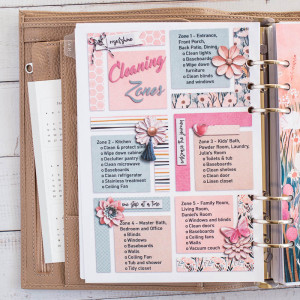 Cleaning
Zones
Zone 1 - Entrance,
Front Porch,
Back Patio, Dining
o Clean lights
o Baseboards
o Wipe down
furniture
o Clean blinds
and windows
Zone 2 - Kitchen
o Clean & protect
o Wipe down
o Declutter pantry
o Clean microwave
o Baseboards
o Clean refrigerator
o Stainless treatment
o Ceiling Fan
Zone 3 - Kids' Bath,
Powder Room, Laundry,
Julia's Room
o Toilets & tub
o Baseboards
o Clean out
dryer
o Linen closet
one step at a time
Zone 4 - Master Bath,
Bedroom and Office
o Blinds
o Windows
o Baseboards
o Walls
o Ceiling Fan
o Tub and shower
o Tidy closet
Zone 5 - Family Room,
Living Room,
Daniel's Room
o Windows and blinds
o Clean doors
o Baseboards
o Ceiling fans
o Walls
o Vacuum couch